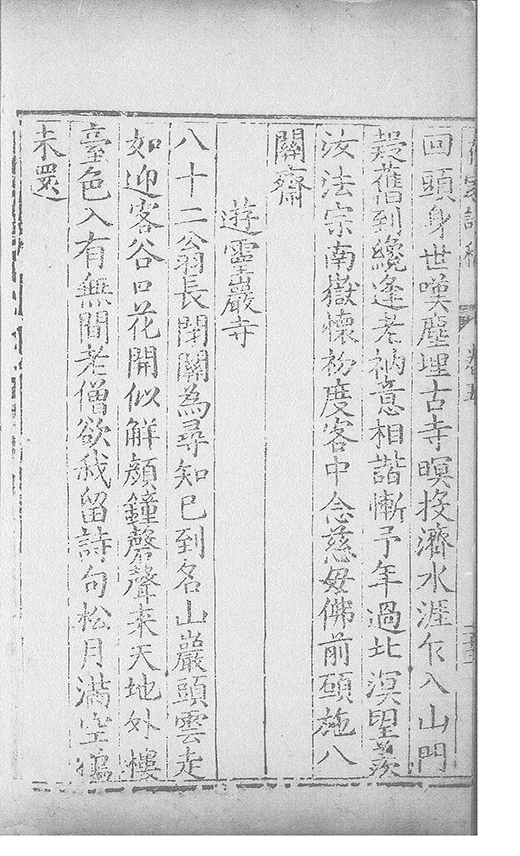 回頭身世嘆塵埋古寺暝投濟水涯乍入山門
疑舊到纔逢老衲意相諧慚予年過北溟望羨
汝法宗南嶽懷初度客中念慈母佛前願施八
關齋
遊靈巖寺
八十二翁長閉關為尋知己到名山巖頭雲走
如迎客谷口花開似解顏鐘磬聲來天地外樓
臺色入有無間老僧欲我留詩句松月滿空猶
未還